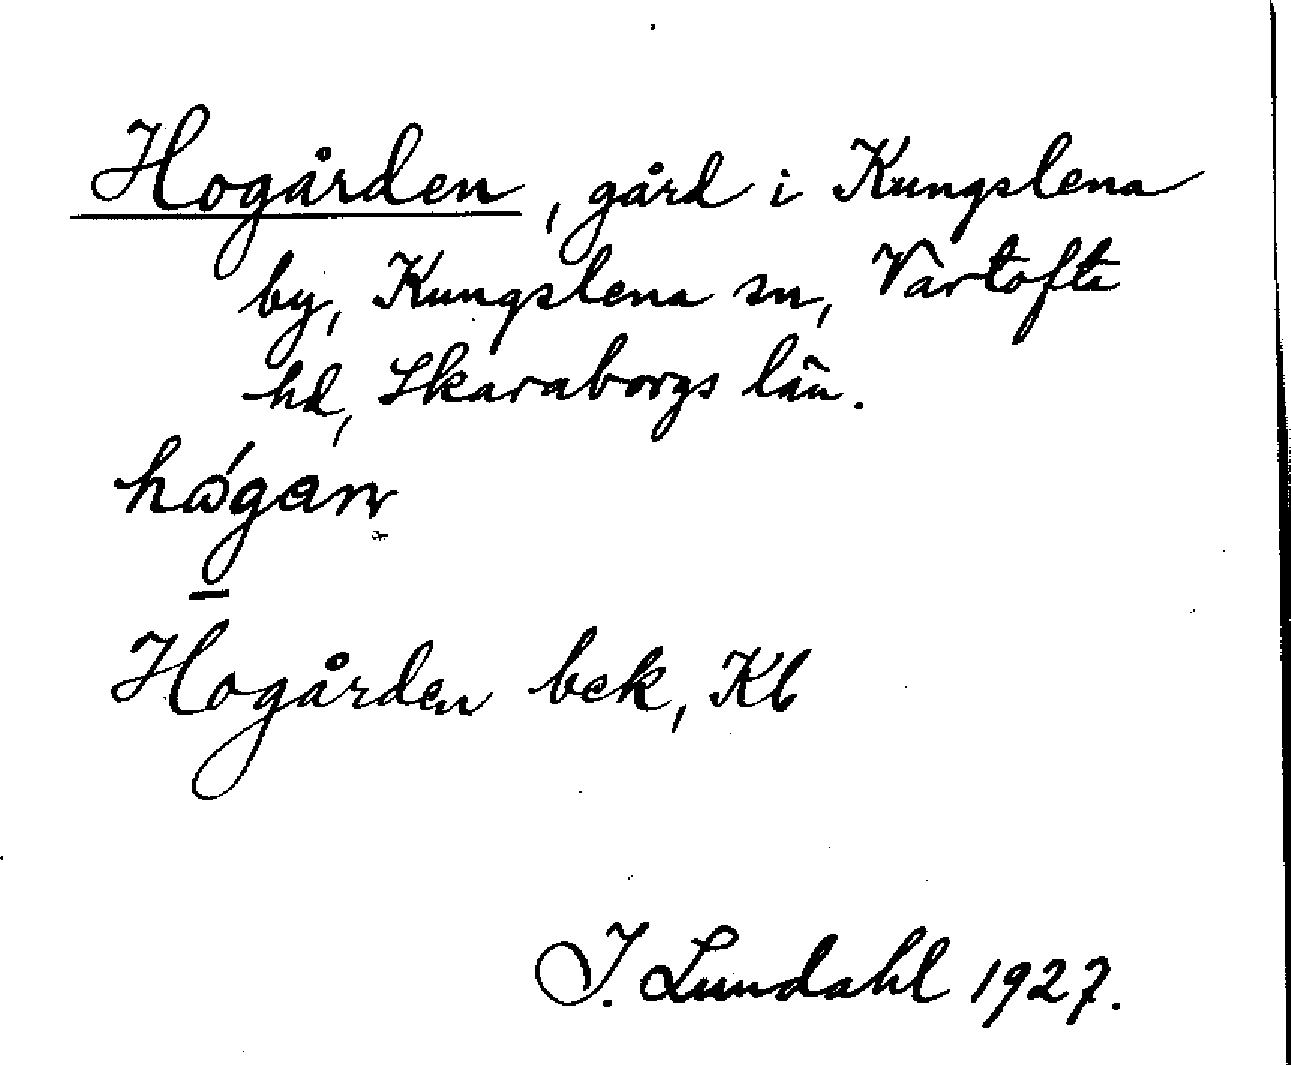 Hogården, gård i Kungslena
by, Kungslena sn, Vartofta
hd, Skaraborgs län.
Hogården bek, Kb
I. Lundahl 1927.